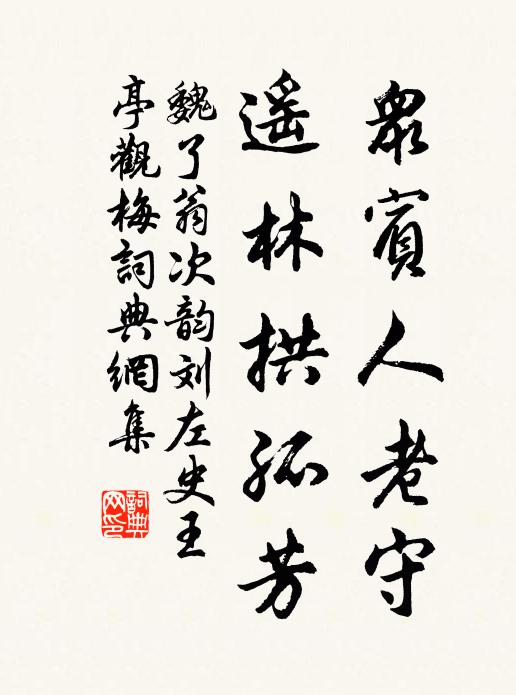 眾賓人老守
遥林拱孤芳
魏了翁次韵刘左史王
亭觀梅詞典網集
詞典网印